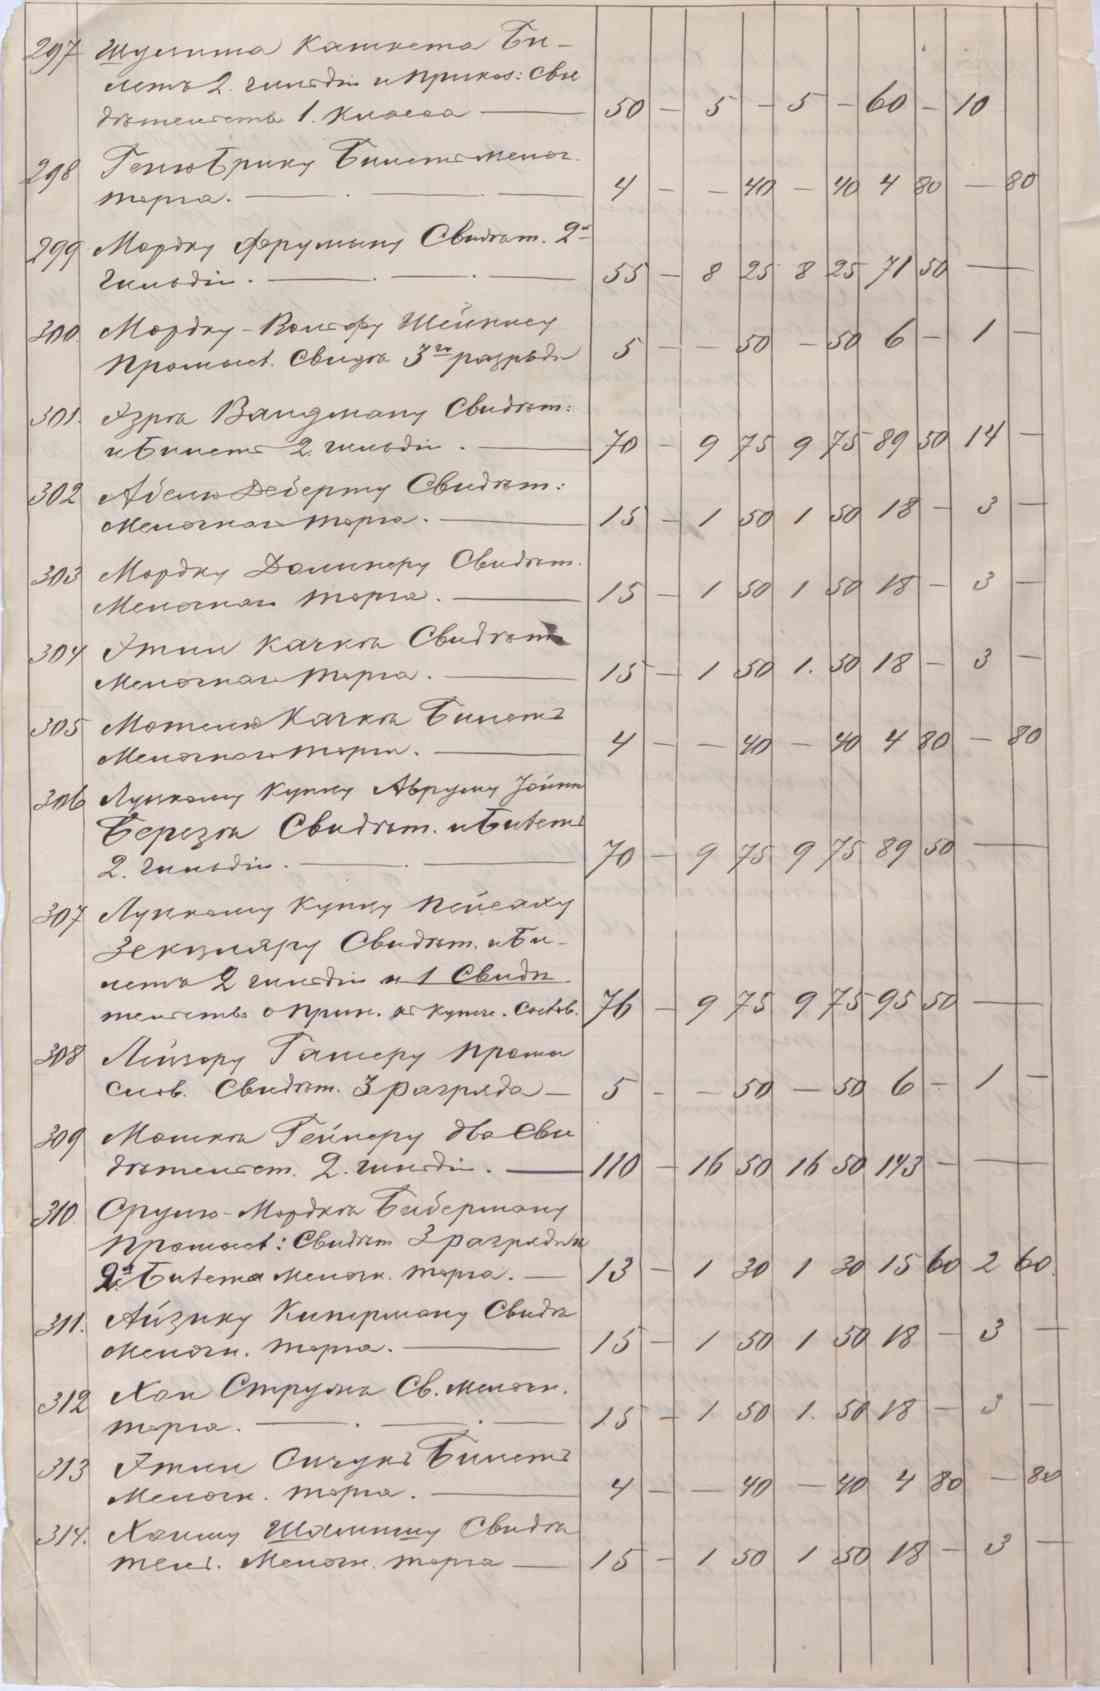 297 Шулима Камнета Би-
летъ 2. гильдіи и прикаs: сви
дѣтельство 1. класса — 50 — 5 — 5 — 60 — 10
298 Билетъ мелоч.
торга. — 4 — — 40 — 40 4 80 — 80
299 Мордку Фрумину Свидѣт. 2й
гильдіи. — 55 — 8 25 8 25 71 50 —
300 Мордку-Вольфу Шейнису
Промысл. Свидѣ 3го разряда 5 — — 50 — 50 6 — 1 —
301. Азрѣ Вандману Свидѣт:
и Билетъ 2 гильдіи. — 70 — 9 75 9 75 89 50 14 —
302 Абелю Деберту Свидѣт:
Мелочнаго торга. — 15 — 1 50 1 50 18 — 3 —
303 Мордку Долинеру Свидѣт.
Мелочнаго торга. — 15 — 1 50 1 50 18 — 3 —
304 Этли Качка Свидѣт
Мелочнаго торга. — 15 — 1 50 1. 50 18 — 3 —
305 Мотелю Качка Билетъ
Мелочнаго торга. — 4 — — 40 — 40 4 80 — 80
306 Луцкому купцу Авруму
Береза Свидѣт. и Билетъ
2. гильдіи. — 70 — 9 75 9 75 89 50 —
307 Луцкому купцу Пейсаху
Зекцляру Свидѣт. и Би-
летъ 2 гильдіи и 1 Свидѣ
тельство о прин. къ купеч. сослов. 76 — 9 75 9 75 95 50 —
308 Лейзору Галперу Промы
слов. Свидѣт. 3 разряда — 5 — — 50 — 50 6 — 1 —
309 Мошка Гейнеру два Сви
дѣтельст. 2. гильдіи. — 110 — 16 50 16 50 143 — —
310 Срулю-Мордка Биберману
Промысл: Свидѣт 3 разряда и
2а Билета мелочн. торга. — 13 — 1 30 1 30 15 60 2 60.
311. Айзику Киперману Свидѣ
Мелочн. торга. — 15 — 1 50 1 50 18 — 3 —
312 Хаи Струма Св. мелочн.
торга. — 15 — 1 50 1. 50 18 — 3 —
313 Этли Сичукъ Билетъ
Мелочн. торга. — 4 — — 40 — 40 4 80 — 80
314. Хаиму Шамишу Свидѣ
тель. Мелочн. торга — 15 — 1 50 1 50 18 — 3 —